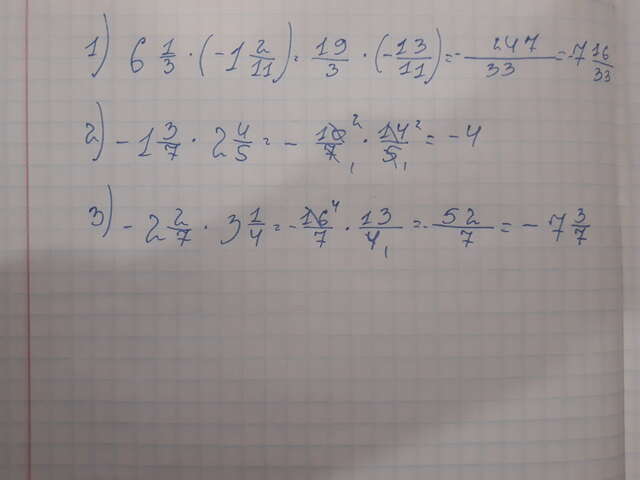 1) 6 1/3 · (-1 2/11) = 19/3 · (-13/11) = - 247/33 = -7 16/33
2) -1 3/7 · 2 4/5 = - 10/7 2 1 · 14/5 2 1 = -4
3) -2 2/7 · 3 1/4 = - 16/7 4 · 13/4 1 = - 52/7 = -7 3/7